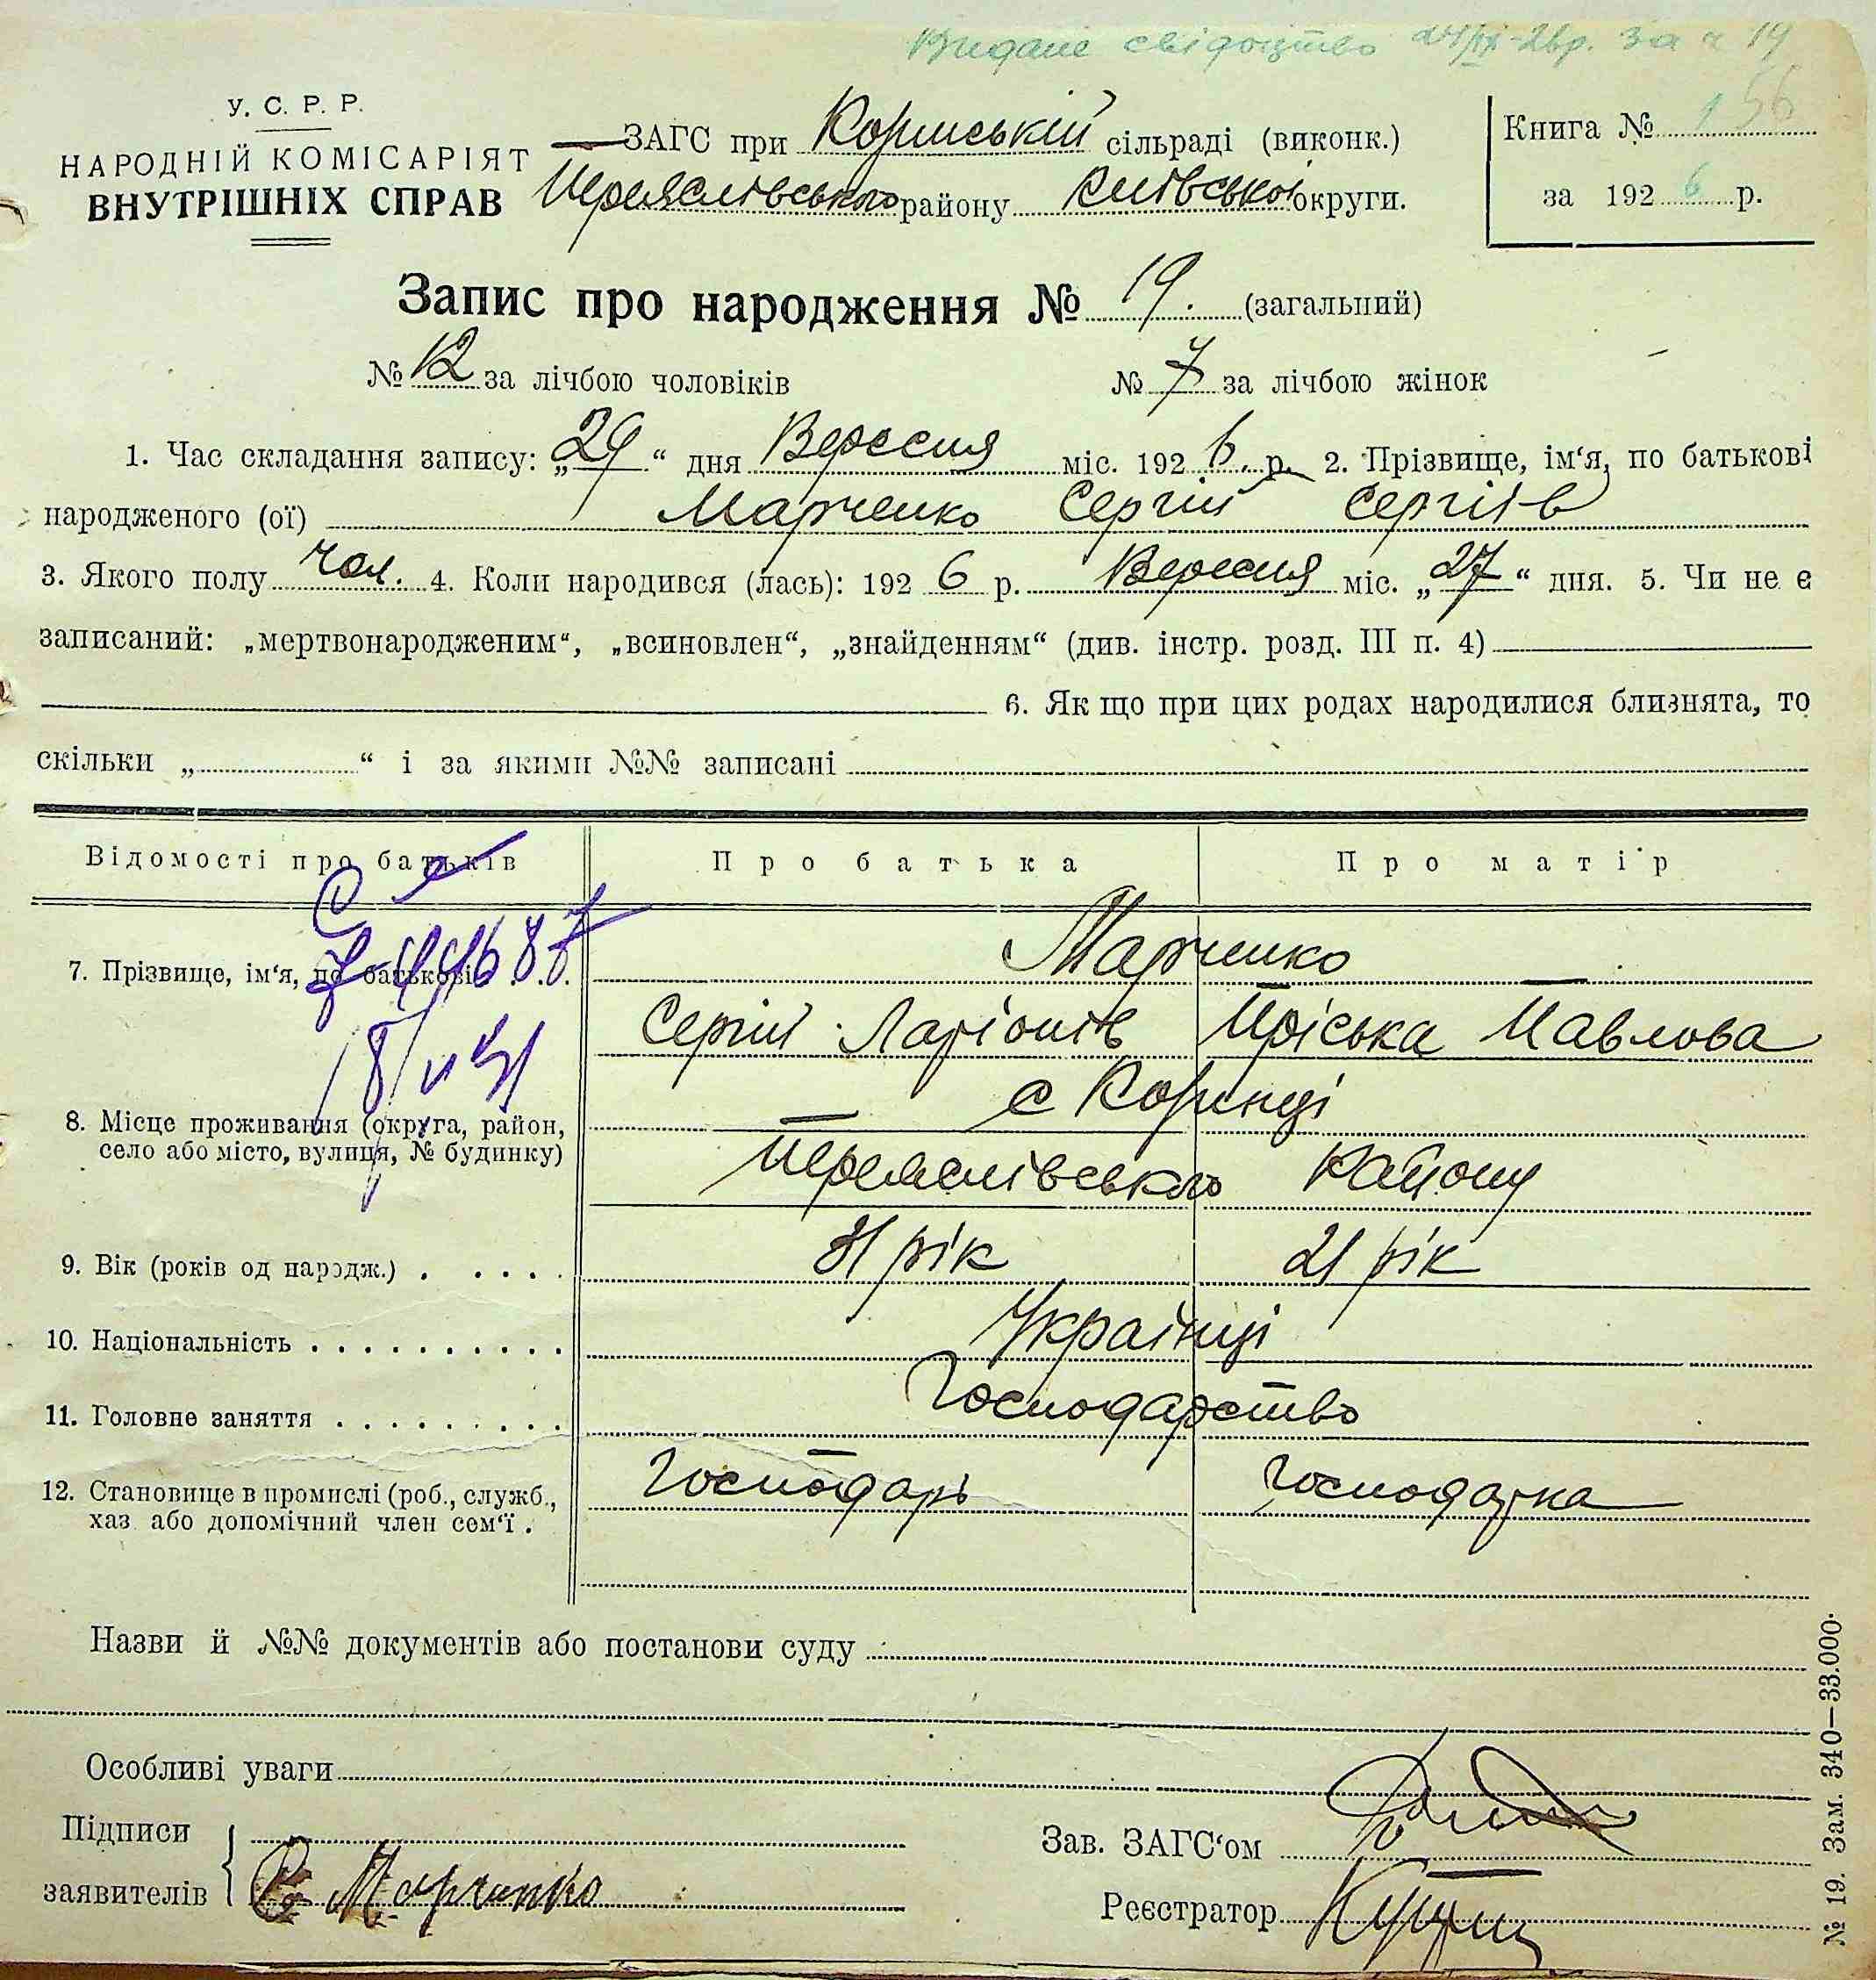 Видане свідоцтво 24/IX-26р. за ч 19
У. С. Р. Р.
НАРОДНІЙ КОМІСАРІЯТ
ВНУТРІШНІХ СПРАВ
ЗАГС при Корінській сільраді (виконк.)
Переяслівського району Київської округи.
Книга № 156
за 1926 р.
Запис про народження № 19. (загальний)
№ 12 за лічбою чоловіків № 7 за лічбою жінок
1. Час складання запису: „29“ дня Вересня міс. 1926. р. 2. Прізвище, ім'я, по батькові
народженого (ої) Марченко Сергій Сергіїв
3. Якого полу чол. 4. Коли народився (лась): 1926 р. Вересня міс. „27“ дня. 5. Чи не є
записаний: „мертвонародженим“, „всиновлен“, „знайденням“ (див. інстр. розд. III п. 4)
6. Як що при цих родах народилися близнята, то
скільки „ “ і за якими №№ записані
Відомості про батьків Про батька Про матір
7. Прізвище, ім'я, по батькові . . . Марченко
Сергій Ларіонів Пріська Павлова
8. Місце проживання (округа, район,
село або місто, вулиця, № будинку)
с Корінці
Переяслівського Району
9. Вік (років од народж.) . . . . . 31 рік 21 рік
10. Національність . . . . . . . . . . Українці
11. Головне заняття . . . . . . . . . Господарство
12. Становище в промислі (роб., служб.,
хаз або допомічний член сем'ї .
Господарь Господарка
Назви й №№ документів або постанови суду
Особливі уваги
Підписи
заявителів
С. Марченко
Зав. ЗАГС'ом
Реєстратор
№ 19. Зам. 340—33.000.